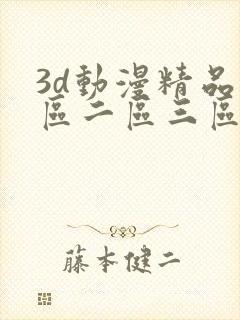 3d動漫精品
區二區三區
藤本健二